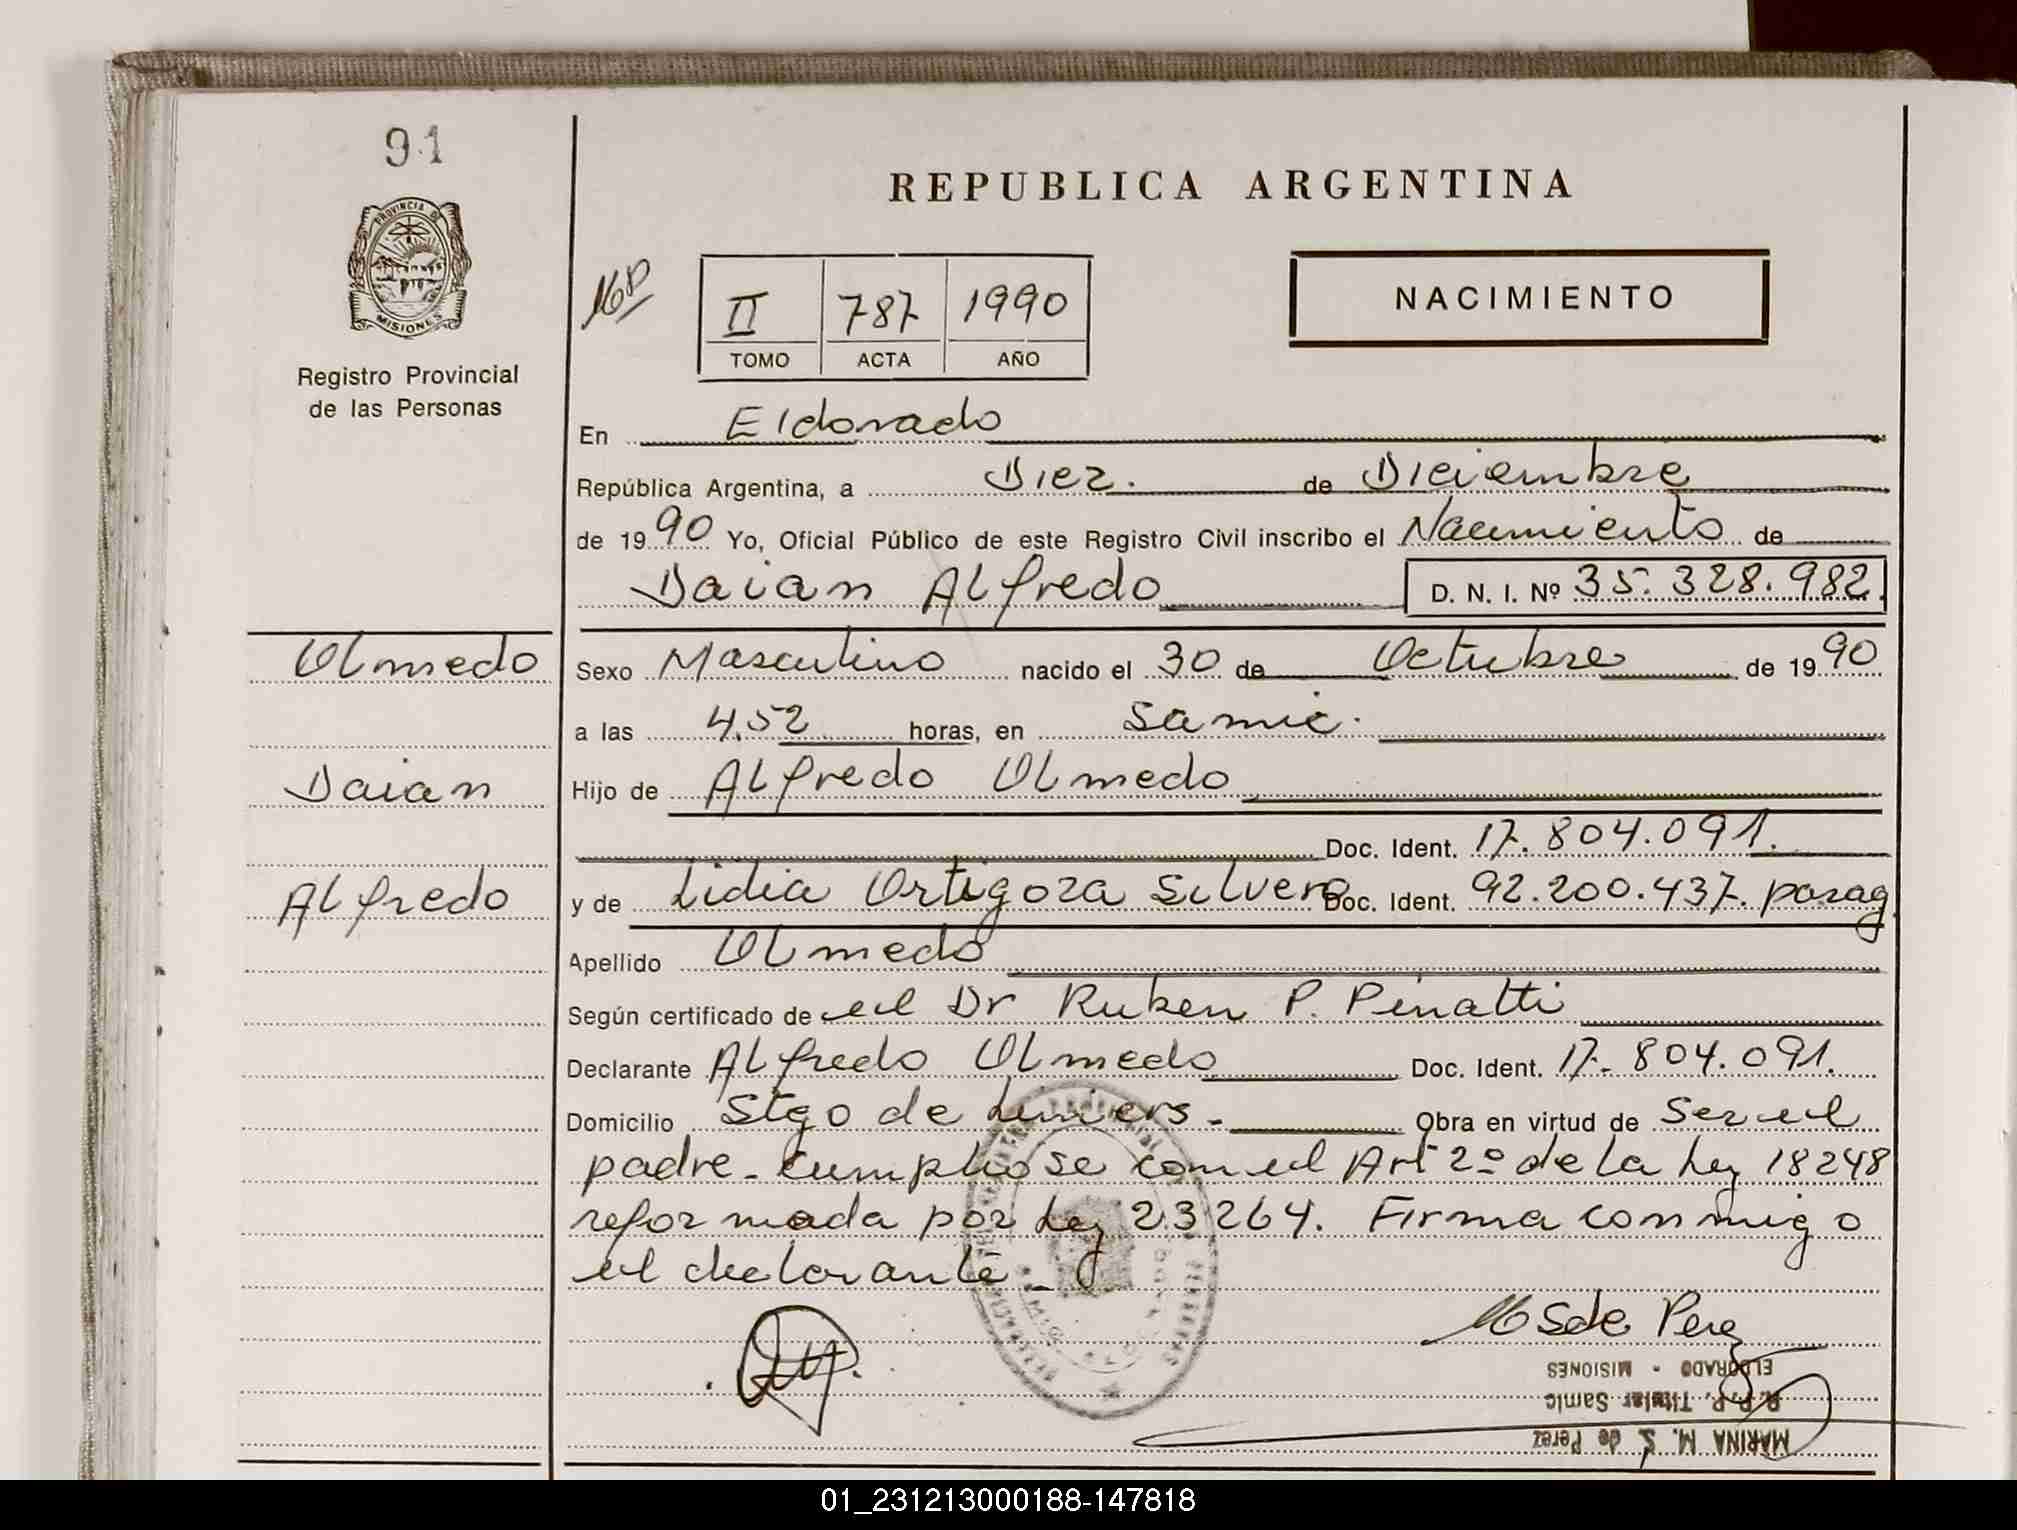 91
PROVINCIA DE
MISIONES
Registro Provincial
de las Personas
REPUBLICA ARGENTINA
II 787 1990
TOMO ACTA AÑO
NACIMIENTO
En Eldorado
República Argentina, a Diez. de Diciembre
de 1990 Yo, Oficial Público de este Registro Civil inscribo el Nacimiento de
Daian Alfredo D. N. I. Nº 35.328.982.
Olmedo
Sexo Masculino nacido el 30 de Octubre de 1990
a las 4.52 horas, en Samic.
Daian
Hijo de Alfredo Olmedo
Doc. Ident. 17.804.091.
Alfredo
y de Lidia Ortigoza Silvero Doc. Ident. 92.200.437. parag
Apellido Olmedo
Según certificado de el Dr Ruben P. Pinatti
Declarante Alfredo Olmedo Doc. Ident. 17.804.091.
Domicilio Stgo de Liniers.- Obra en virtud de ser el
padre - cumpliose con el Art 2º de la Ley 18248
reformada por Ley 23264. Firma conmigo
el declarante -
MSde Perez
MARINA M. S. de Perez
R. P. P. Titular Samic
ELDORADO - MISIONES
01_231213000188-147818